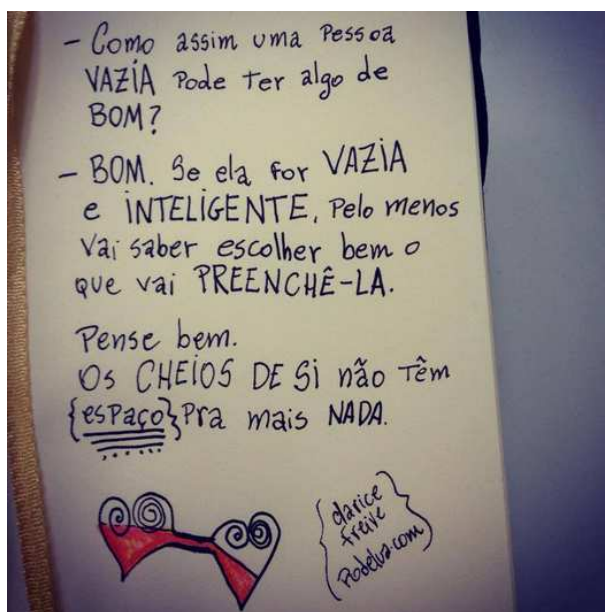 - Como assim uma Pessoa
VAZIA Pode Ter algo de
BOM?
- BOM. Se ela for VAZIA
e INTELIGENTE, Pelo menos
vai saber escolher bem o
que vai PREENCHÊ-LA.
Pense bem.
Os CHEIOS DE Si não Têm
{esPaço} Pra mais NADA.
{clarice
freire
Podelua.com}